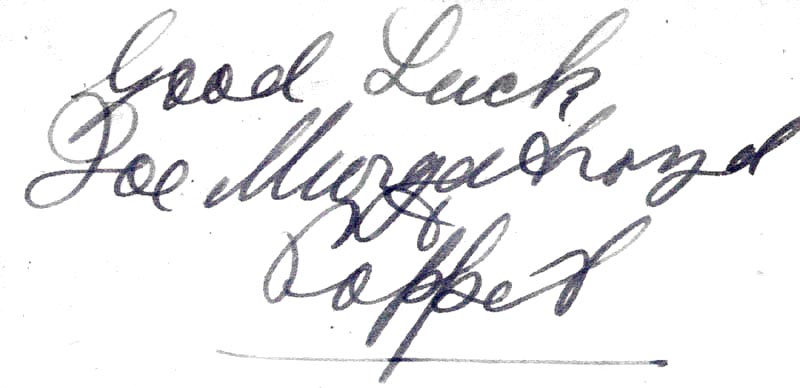 Good Luck
Joe Murgatroyd
&
Poppet